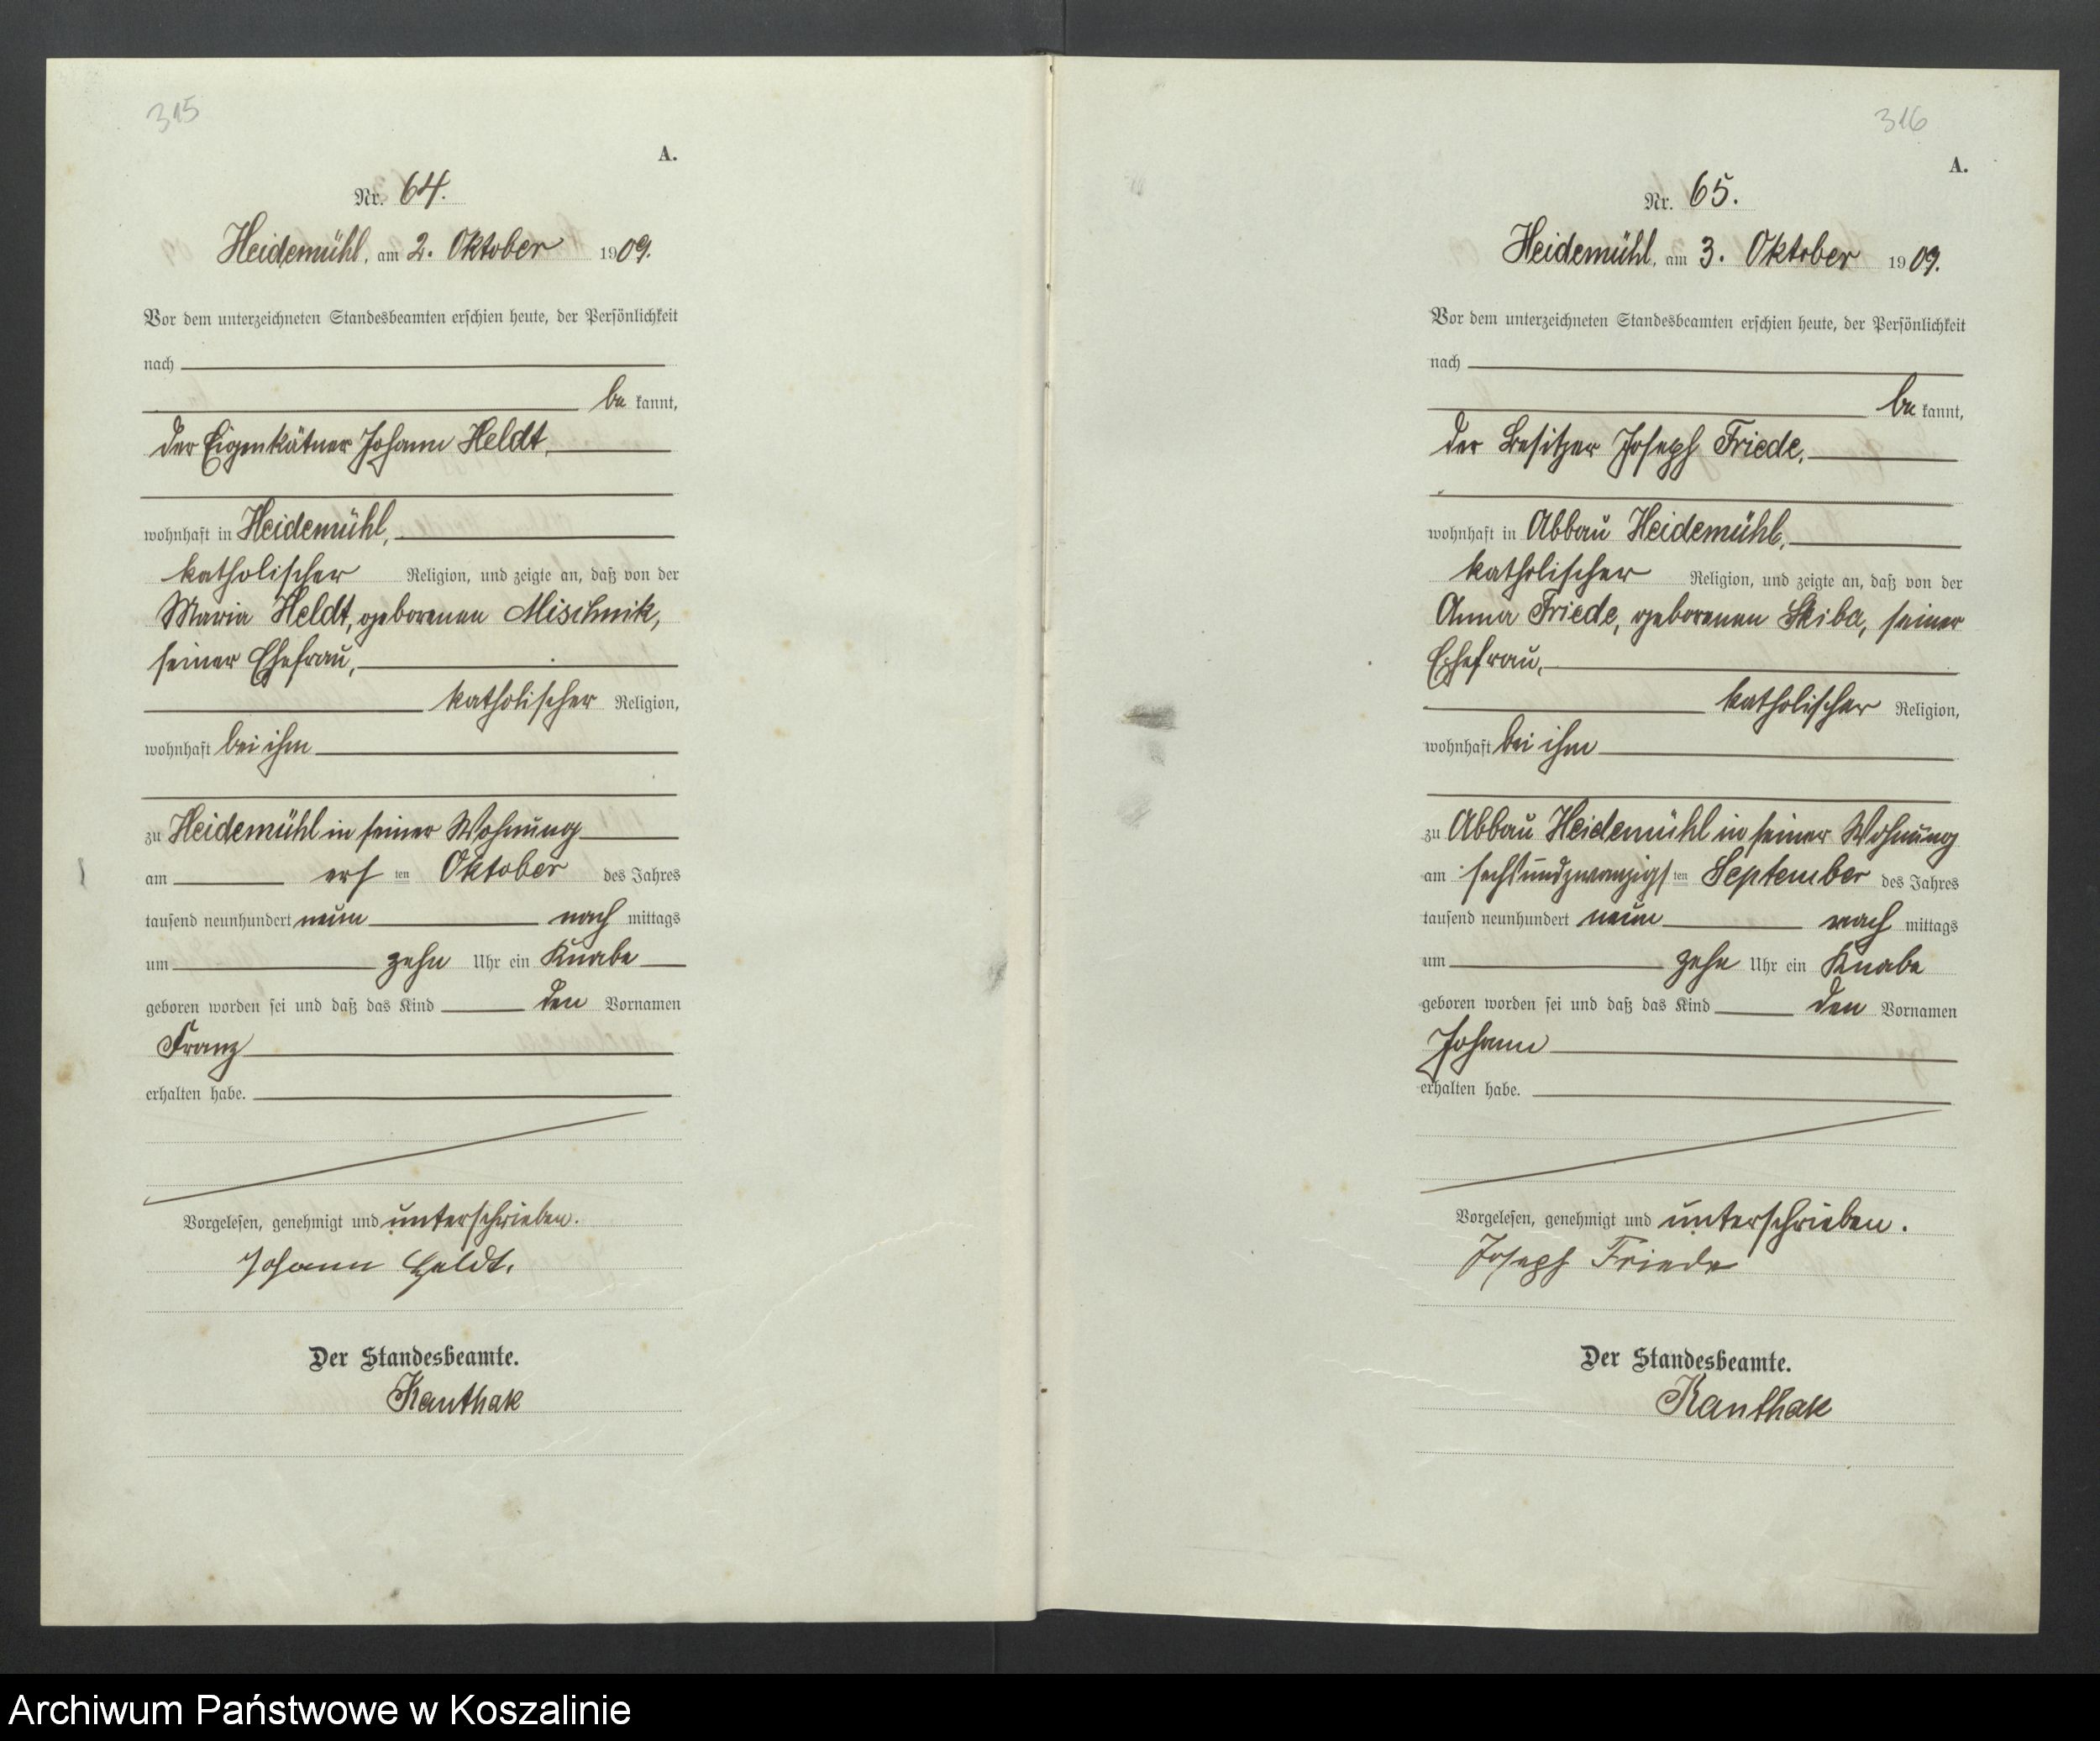 315
A.
Nr. 64.
Heidemühl, am 2. Oktober 1909.
Vor dem unterzeichneten Standesbeamten erschien heute, der Persönlichkeit
nach
be kannt,
der Eigenkätner Johann Heldt,
wohnhaft in Heidemühl,
katholischer Religion, und zeigte an, daß von der
Maria Heldt, geborenen Mischnik,
seiner Ehefrau,
katholischer Religion,
wohnhaft bei ihm
zu Heidemühl in seiner Wohnung
am ersten Oktober des Jahres
tausend neunhundert neun nach mittags
um zehn Uhr ein Knabe
geboren worden sei und daß das Kind den Vornamen
Franz
erhalten habe.
Vorgelesen, genehmigt und unterschrieben.
Johann Heldt.
Der Standesbeamte.
Kanthak
316
A.
Nr. 65.
Heidemühl, am 3. Oktober 1909.
Vor dem unterzeichneten Standesbeamten erschien heute, der Persönlichkeit
nach
be kannt,
der Besitzer Joseph Friede,
wohnhaft in Abbau Heidemühl,
katholischer Religion, und zeigte an, daß von der
Anna Friede, geborenen Skiba, seiner
Ehefrau,
katholischer Religion,
wohnhaft bei ihm
zu Abbau Heidemühl in seiner Wohnung
am sechsundzwanzigsten September des Jahres
tausend neunhundert neun nach mittags
um zehn Uhr ein Knabe
geboren worden sei und daß das Kind den Vornamen
Johann
erhalten habe.
Vorgelesen, genehmigt und unterschrieben.
Joseph Friede
Der Standesbeamte.
Kanthak
Archiwum Państwowe w Koszalinie